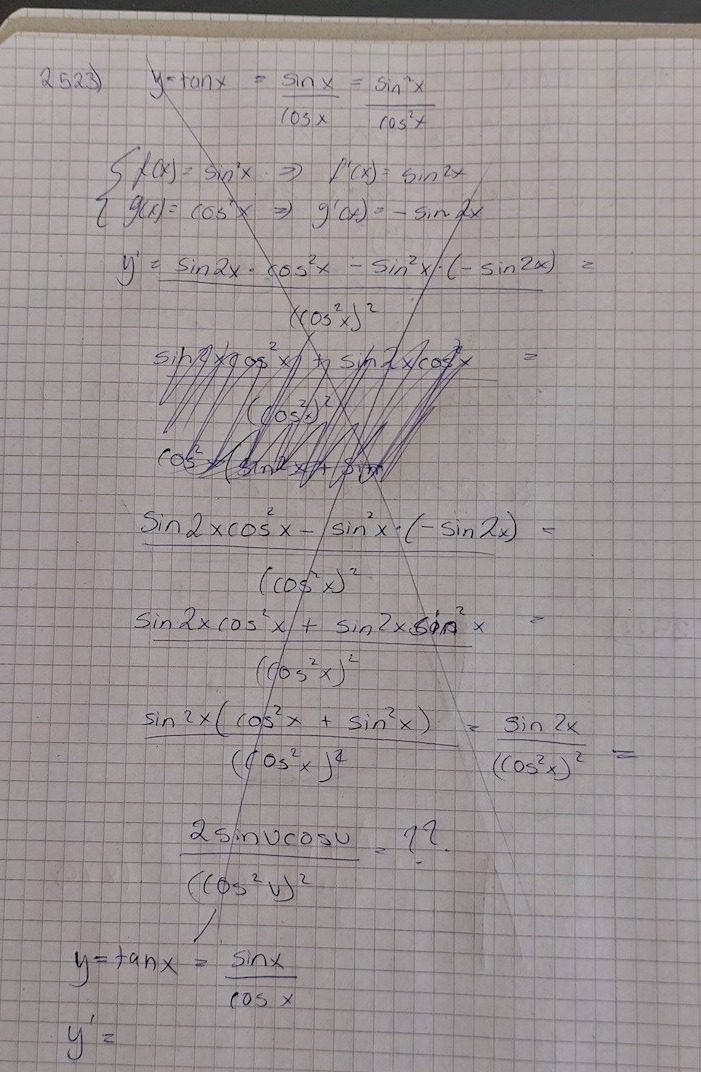 2523) y=tanx = sin x / cos x = sin²x / cos²x
{ f(x) = sin²x ⇒ f'(x) = sin2x
g(x) = cos²x ⇒ g'(x) = - sin 2x
y' = sin2x · cos²x - sin²x · (- sin2x) / (cos²x)² =
sin2x cos²x + sin2x cos²x / (cos²x)² =
cos²x (sin2x + sin
sin2xcos²x - sin²x · (-sin2x) / (cos²x)² =
sin2xcos²x + sin2x sin²x / (cos²x)² =
sin2x (cos²x + sin²x) / (cos²x)² = sin 2x / (cos²x)² =
2sinvcosv / (cos²v)² = ??.
y=tanx = sinx / cos x
y' =